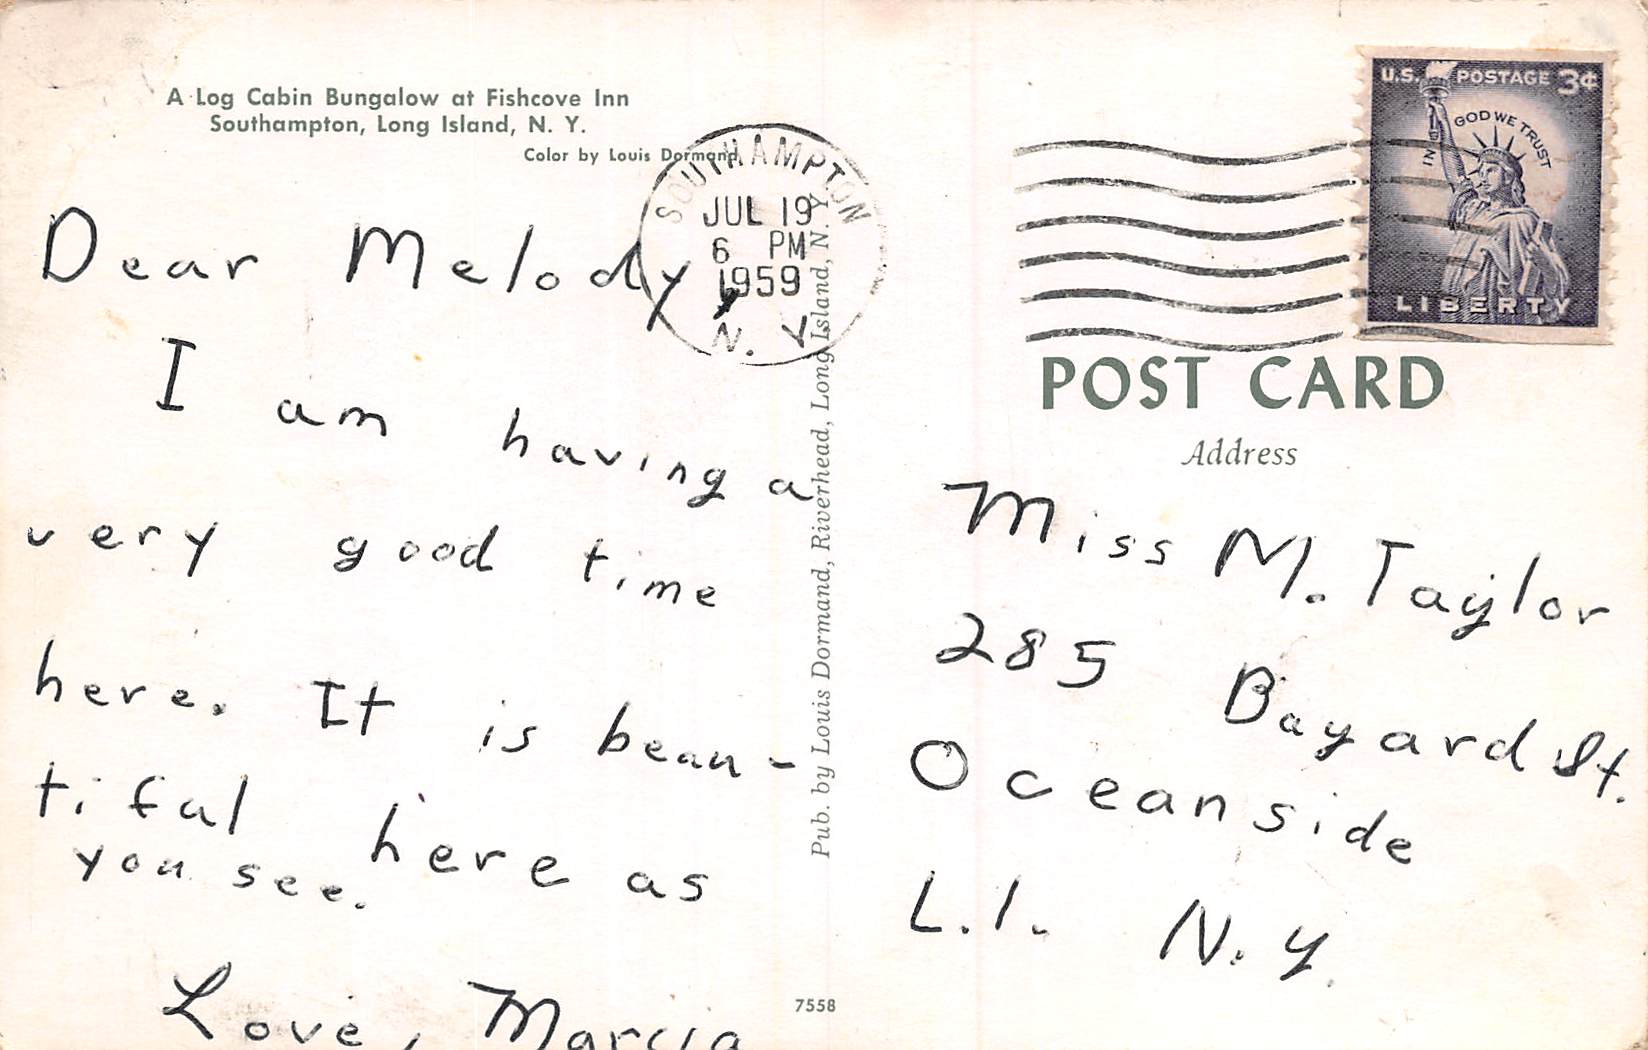 A Log Cabin Bungalow at Fishcove Inn
Southampton, Long Island, N. Y.
Color by Louis Dormand
Dear Melody,
I am having a
very good time
here. It is beau-
tiful here as
you see.
Love, Marcia
SOUTHAMPTON
JUL 19
6 PM
1959
N. Y.
Pub. by Louis Dormand, Riverhead, Long Island, N. Y.
7558
U.S. POSTAGE 3¢
IN GOD WE TRUST
LIBERTY
POST CARD
Address
Miss M. Taylor
285 Bayard St.
Oceanside
L.I. N.Y.